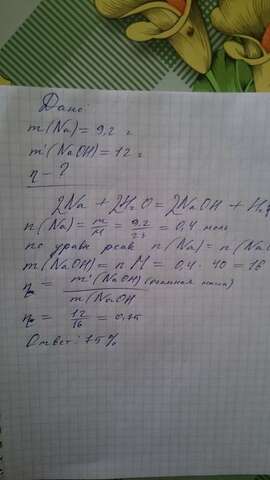 Дано:
m(Na) = 9,2 г
m'(NaOH) = 12 г
η - ?
2Na + 2H₂O = 2NaOH + H₂↑
n(Na) = m/M = 9,2/23 = 0,4 моль
по уравн реак n(Na) = n(NaO
m(NaOH) = n M = 0,4 · 40 = 16
η = m'(NaOH) (реальная масса) / m(NaOH
η = 12/16 = 0,75
Ответ: 75%